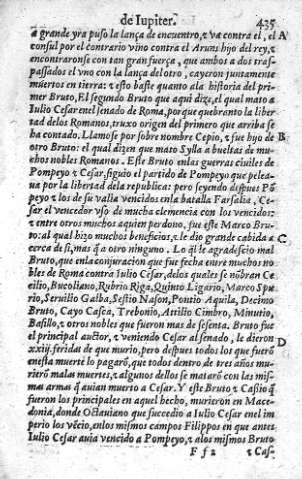 de Iupiter. 435
a grande yra puso la lança de encuentro, ⁊ va contra el, el A
consul por el contrario vino contra el Aruns hijo del rey, ⁊
encontraronse con tan gran fuerça, que ambos a dos tras-
passados el vno con la lança del otro, cayeron juntamente
muertos en tierra: ⁊ esto baste quanto ala historia del pri
mer Bruto, El segundo Bruto que aqui dize, el qual mato a
Iulio Cesar enel senado de Roma, porque quebranto la liber
tad delos Romanos, truxo origen del primero que arriba se
ha contado. Llamose por sobre nombre Cepio, ⁊ fue hijo de B
otro Bruto: el qual dizen que mato Sylla a bueltas de mu-
chos nobles Romanos. Este Bruto enlas guerras ciuiles de
Pompeyo ⁊ Cesar, siguio el partido de Pompeyo que pelea-
ua por la libertad dela republica: pero seyendo despues Põ
peyo ⁊ los de su valia vencidos enla batalla Farsalia, Ce-
sar el vencedor vso de mucha clemencia con los vencidos:
⁊ entre otros muchos aquien perdono, fue este Marco Bru-
to: al qual hizo muchos beneficios, ⁊ le dio grande cabida a C
cerca de si, mas q̃ a otro ninguno. Lo q̃l le agradescio mal
Bruto, que enla conjuracion que fue fecha entre muchos no
bles de Roma contra Iulio Cesar, delos quales se nõbran Ce
cilio, Bucoliano, Rubrio Riga, Quinto Ligario, Marco Spu
rio, Seruilio Galba, Sestio Nason, Pontio Aquila, Decimo
Bruto, Cayo Casca, Trebonio, Attilio Cimbro, Minutio,
Basillo, ⁊ otros nobles que fueron mas de sesenta. Bruto fue
el principal auctor, ⁊ veniendo Cesar al senado, le dieron D
xxiij. feridas de que murio, pero despues todos los que fuerõ
en esta muerte lo pagarõ, que todos dentro de tres años mu-
rierõ malas muertes, ⁊ algunos dellos se matarõ con las mis-
mas armas q̃ auian muerto a Cesar. Y este Bruto ⁊ Casio q̃
fueron los principales en aquel hecho, murieron en Mace-
donia, donde Octauiano que succedio a Iulio Cesar enel im
perio los vẽcio, enlos mismos campos Filippos en que antes
Iulio Cesar auia vencido a Pompeyo, ⁊ alos mismos Bruto
F f 2 ⁊ Cas-